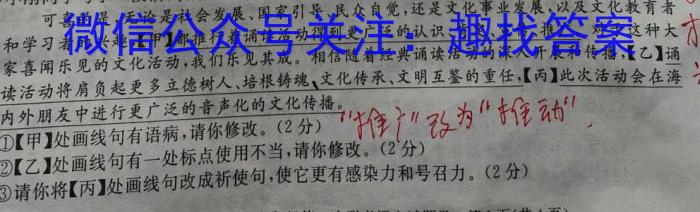 可喜的是,无论是社会发展、国家引导、民众自觉,还是文化事业发展,以及文化教育者
和学习者
都推
着诵读活动得到更广泛的认识
推广。对于这种大
家喜闻乐见的文化活动,我们乐见其成。相信随着经典诵读活动的深入开展和传播,【乙】诵
读活动将肩负起更多立德树人、培根铸魂、文化传承、文明互鉴的重任,【丙】此次活动会在海
内外朋友中进行更广泛的音声化的文化传播。
①【甲】处画线句有语病,请你修改。(2分)
"推广"改为"推动"
②【乙】处画线句有一处标点使用不当,请你修改。(2分)
③请你将【丙】处画线句改成祈使句,使它更有感染力和号召力。(2分)
微信公众号关注:趣找答案